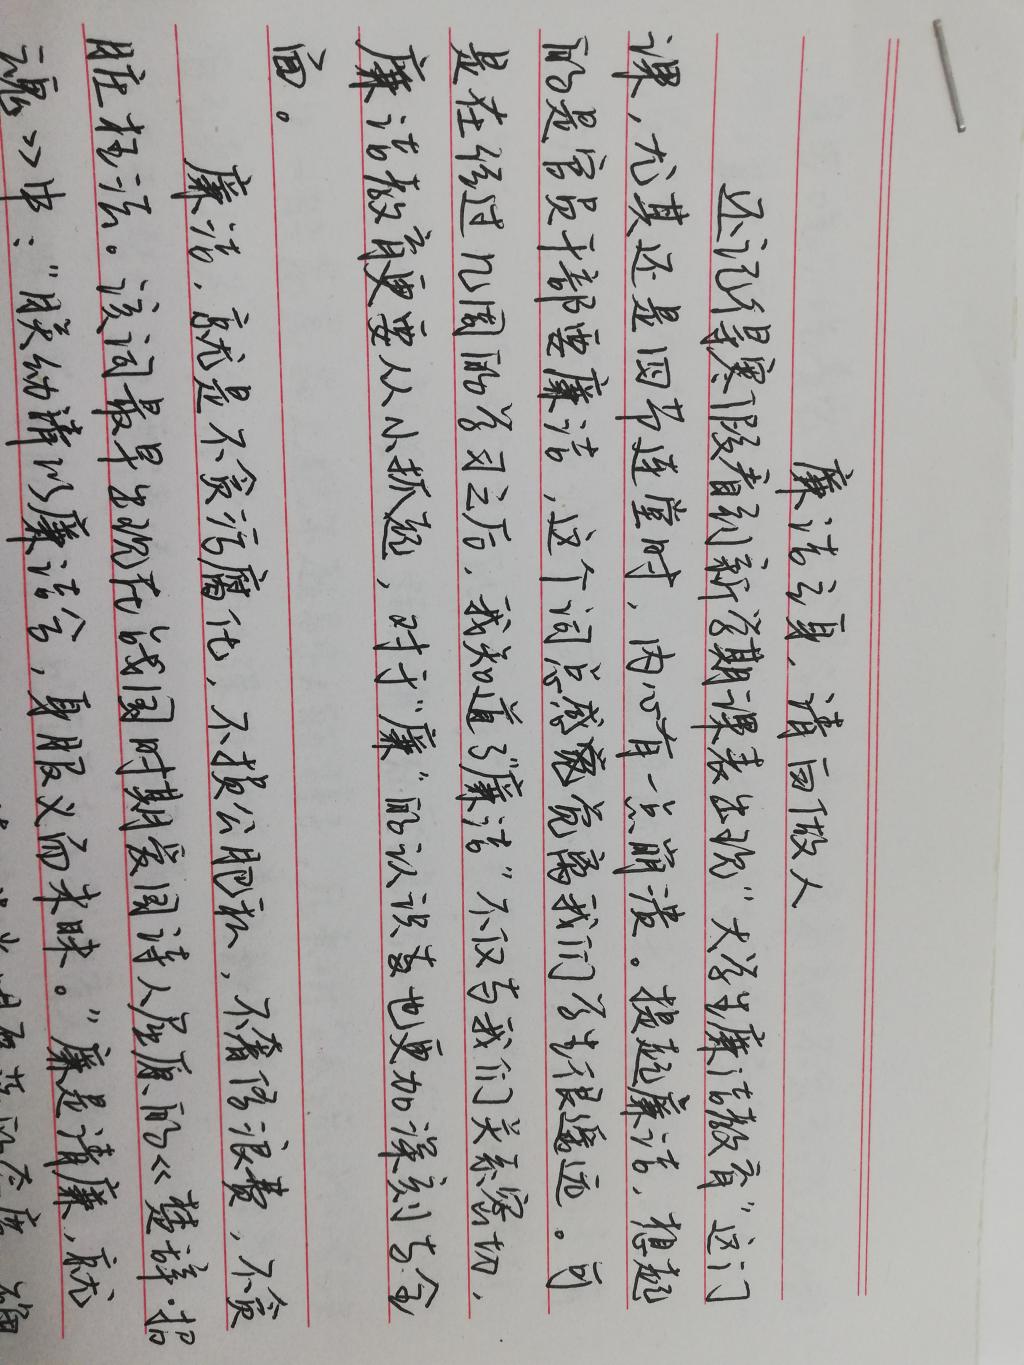 廉洁立身，清白做人
还记得寒假看到新学期课表出现“大学生廉洁教育”这门
课，尤其还是四节连堂时，内心有一点崩溃。提起廉洁，想起
的是官员干部要廉洁，这个词总感觉离我们学生很遥远。可
是在经过几周的学习之后，我知道了“廉洁”不仅与我们关系密切，
廉洁教育更要从小抓起，对于“廉”的认识喜也更加深刻与全
面。
廉洁，就是不贪污腐化，不损公肥私，不奢侈浪费，不贪
脏枉法。该词最早出现在战国时期爱国诗人屈原的《楚辞·招
魂》中：“朕幼清以廉洁兮，身服义而未昧。”廉是清廉，就